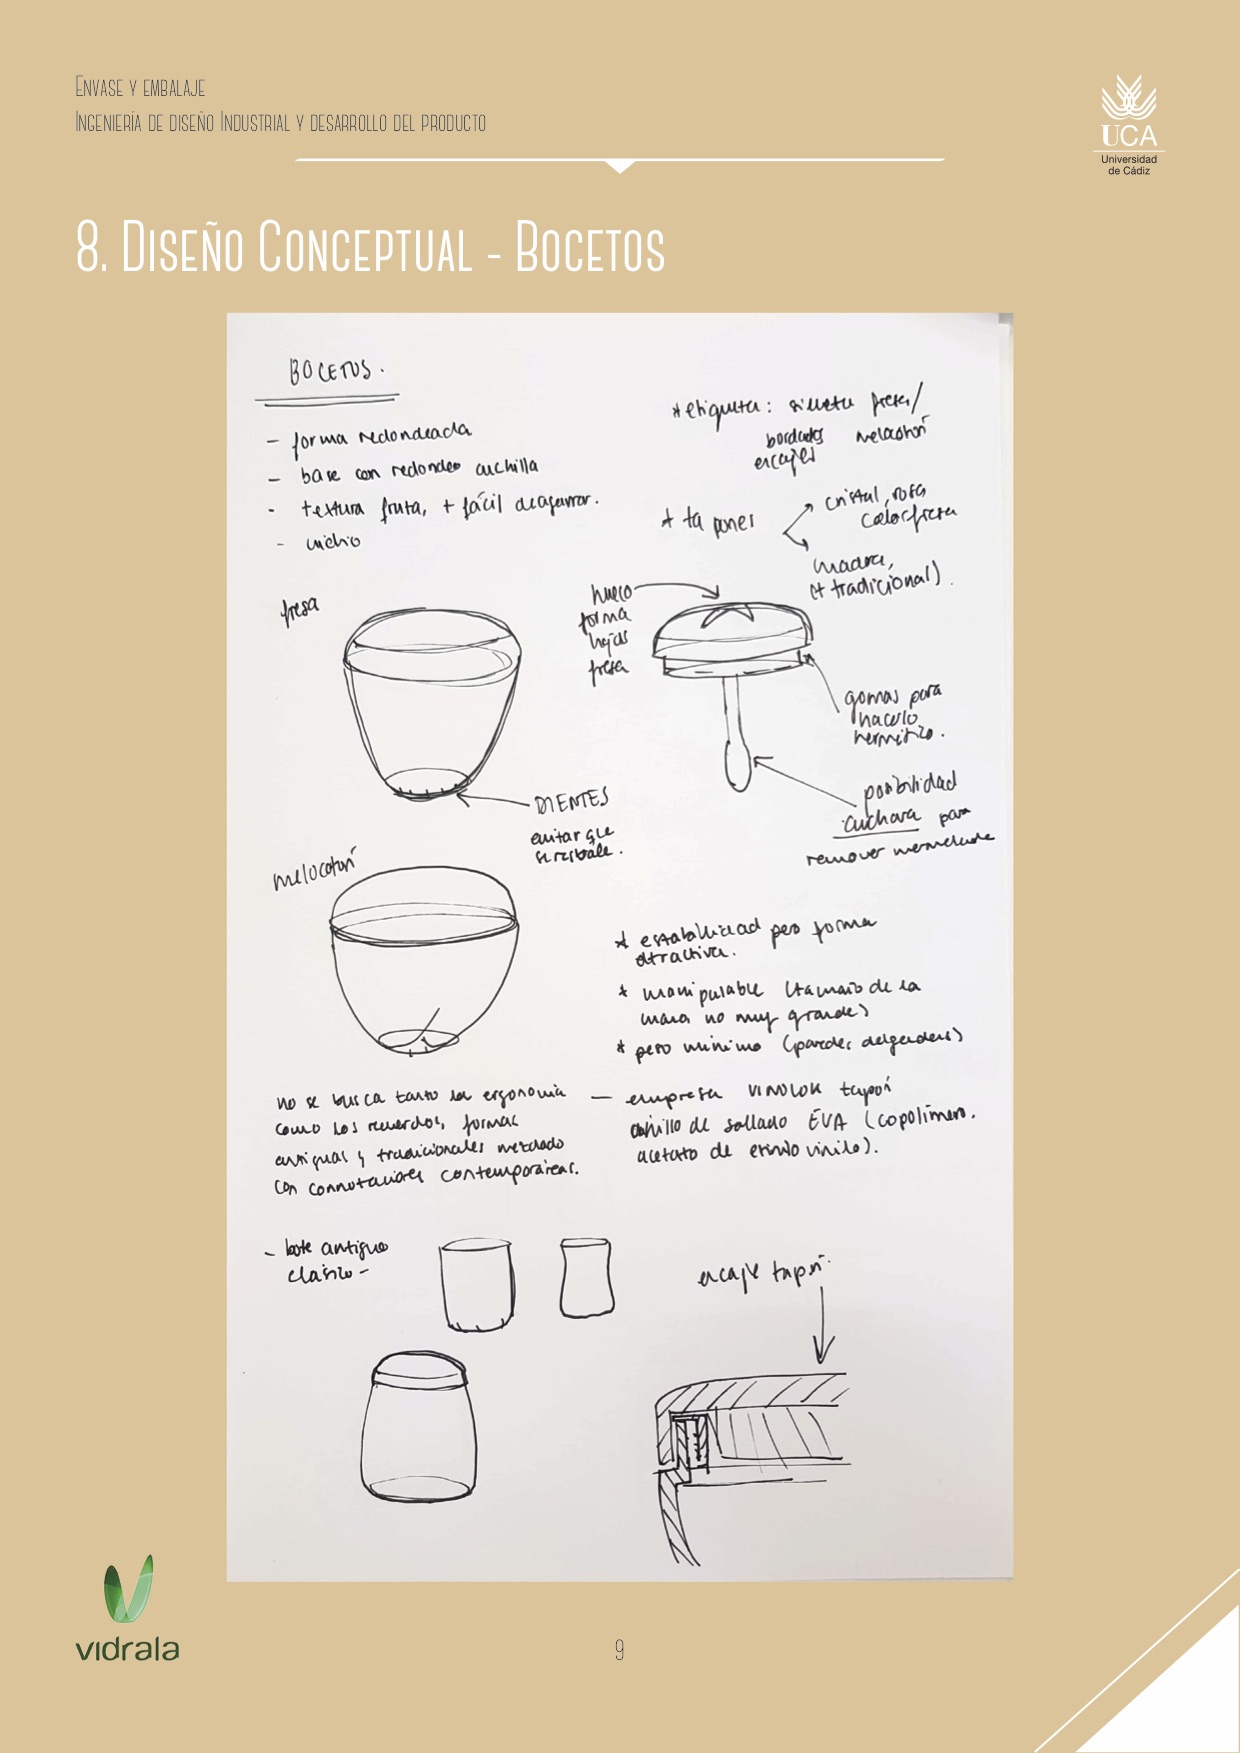 Envase y embalaje
Ingeniería de diseño Industrial y desarrollo del producto
UCA
Universidad
de Cádiz
8. Diseño Conceptual - Bocetos
BOCETOS.
- forma redondeada
- base con redondeo cuchilla
- textura fruta, + fácil de agarrar.
-
* etiqueta: silueta fresa/
bordados melocotón
encajes
* tapones
cristal, rosa
color fresa
madera,
(+ tradicional).
fresa
hueco
forma
hojas
fresa
gomas para
hacerlo
hermético.
DIENTES
evitar que
se resbale.
posibilidad
cuchara para
remover mermelada
melocotón
* estabilidad pero forma
atractiva.
* manipulable (tamaño de la
mano no muy grande)
* peso mínimo (paredes delgadas)
no se busca tanto la ergonomía
como los recuerdos, formas
antiguas y tradicionales mezclado
con connotaciones contemporáneas.
- empresa VINOLOK tapón
anillo de sellado EVA (copolímero.
acetato de etinilo vinilo).
- bote antiguo
clásico -
encaje tapón.
vidrala
9